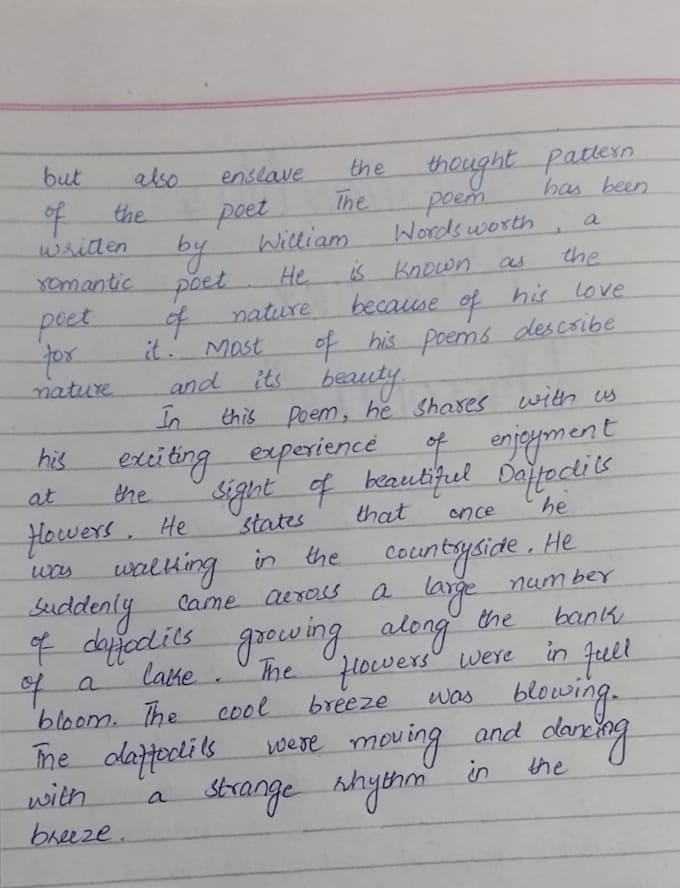 but also enslave the thought pattern
of the poet. The poem has been
written by William Wordsworth, a
romantic poet. He is known as the
poet of nature because of his love
for it. Most of his poems describe
nature and its beauty.
In this poem, he shares with us
his exciting experience of enjoyment
at the sight of beautiful Daffodils
flowers. He states that once he
was walking in the countryside. He
suddenly came across a large number
of daffodils growing along the bank
of a lake. The flowers were in full
bloom. The cool breeze was blowing.
The daffodils were moving and dancing
with a strange rhythm in the
breeze.